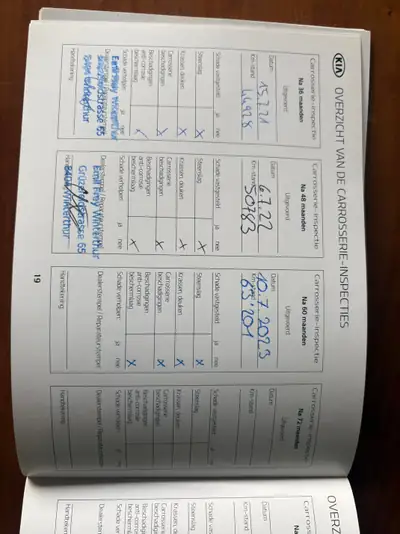 KIA OVERZICHT VAN DE CARROSSERIE-INSPECTIES
Carrosserie-inspectie
Na 36 maanden
Uitgevoerd
Datum 15.7.21
Km-stand 44928
Schade vastgesteld ja nee
Steenslag X
Krassen, deuken X
Carrosserie beschadigingen X
Beschadigingen anti-corrosie beschermlaag
Schade verholpen ja nee
Dealerstempel / Reparateurstempel
Emil Frey Winterthur
Grüzefeldstrasse 65
8404 Winterthur
Handtekening
Carrosserie-inspectie
Na 48 maanden
Uitgevoerd
Datum 6.7.22
Km-stand 50783
Schade vastgesteld ja nee
Steenslag X
Krassen, deuken X
Carrosserie beschadigingen X
Beschadigingen anti-corrosie beschermlaag X
Schade verholpen ja nee
Dealerstempel / Reparateurstempel
Emil Frey Winterthur
Grüzefeldstrasse 65
Winterthur
Carrosserie-inspectie
Na 60 maanden
Uitgevoerd
Datum 10.7.2023
Km-stand 65'201
Schade vastgesteld ja nee
Steenslag X
Krassen, deuken X
Carrosserie beschadigingen X
Beschadigingen anti-corrosie beschermlaag X
Schade verholpen ja nee
Dealerstempel / Reparateurstempel
Handtekening
Carrosserie-inspectie
Na 72 maanden
Uitgevoerd
Datum
Km-stand
Schade vastgesteld
Steenslag
Krassen, deuken
Carrosserie beschadigingen
Beschadigingen anti-corrosie beschermlaag
Schade verholpen
Dealerstempel / Reparateurstempel
Handtekening
19
OVERZ
Carros
Datum
Km-stand
Schade vas
Steenslag
Krassen, de
Carrosserie
beschadig
Beschadig
anti-corros
bescherml
Schade ver
Dealerstem
Handteken